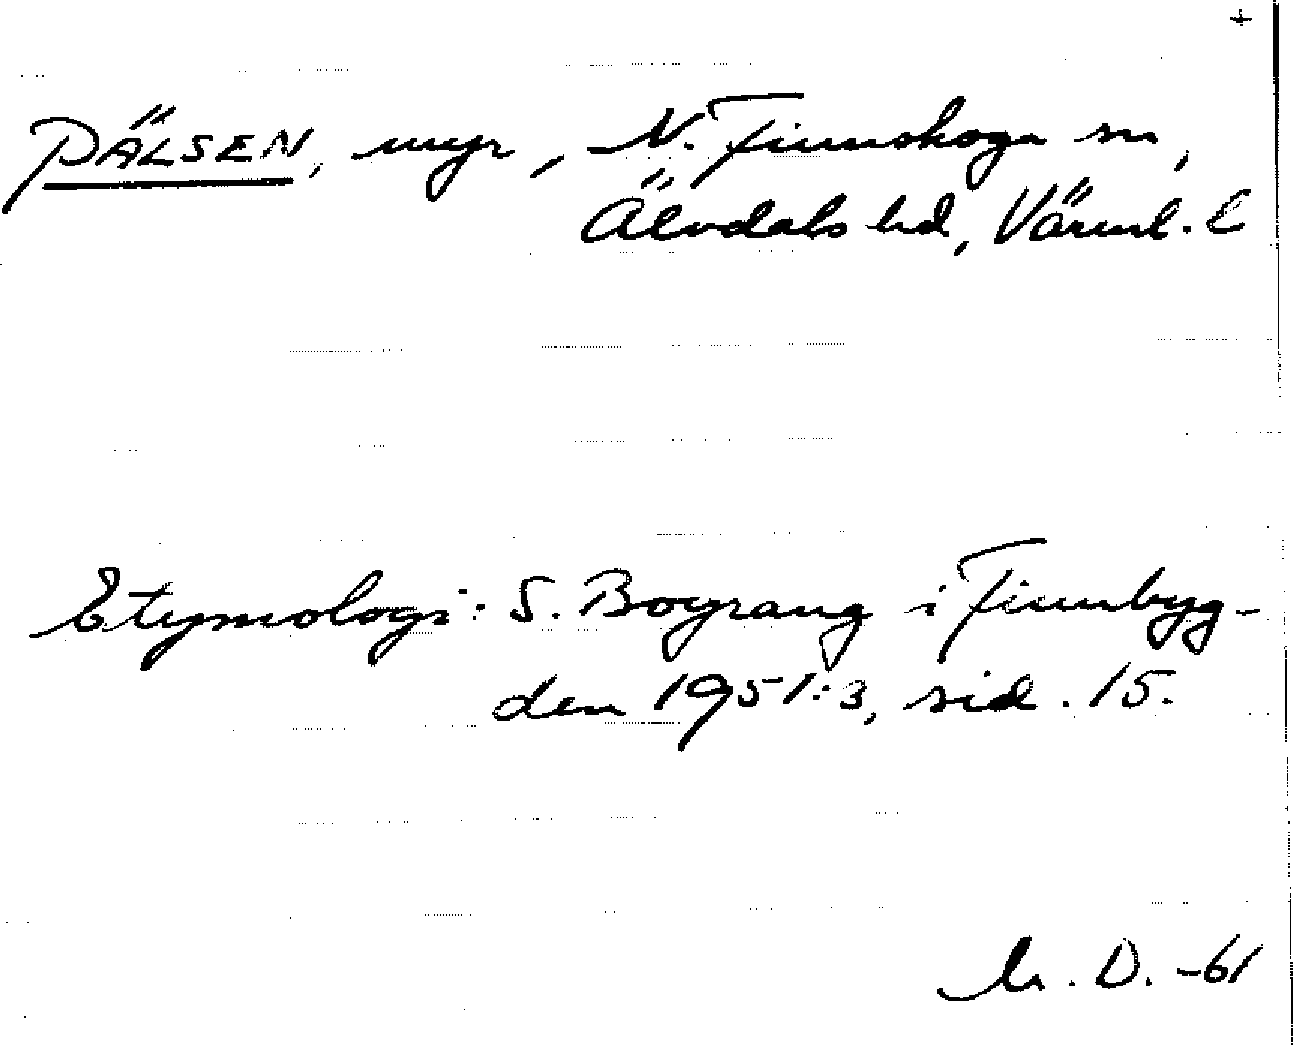 +
PÄLSEN, myr, N. Finnskoga sn,
Älvdals hd, Värml. l
Etymologi: S. Boyrang i Finnbyg-
den 1951:3, sid. 15.
D. -61